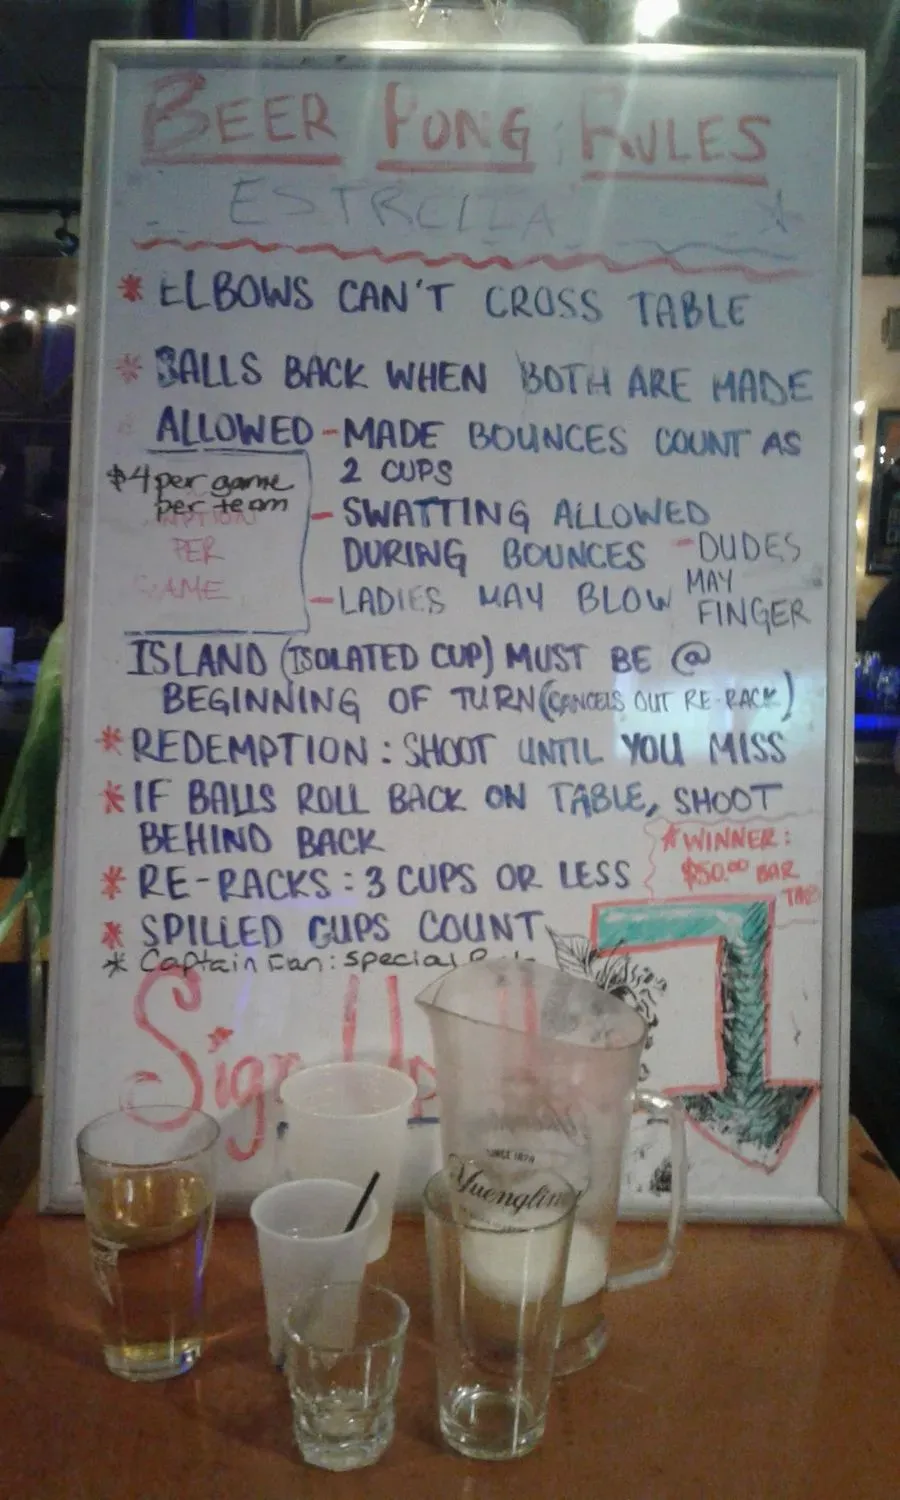 BEER PONG RULES
ESTRELLA
* ELBOWS CAN'T CROSS TABLE
* BALLS BACK WHEN BOTH ARE MADE
* ALLOWED - MADE BOUNCES COUNT AS
2 CUPS
$4 per game
per team
PER
GAME
- SWATTING ALLOWED
DURING BOUNCES
- LADIES MAY BLOW
- DUDES
MAY
FINGER
ISLAND (ISOLATED CUP) MUST BE @
BEGINNING OF TURN (CANCELS OUT RE-RACK)
* REDEMPTION: SHOOT UNTIL YOU MISS
* IF BALLS ROLL BACK ON TABLE, SHOOT
BEHIND BACK
* WINNER:
$50.00 BAR
TAB
* RE-RACKS: 3 CUPS OR LESS
* SPILLED CUPS COUNT
* Captain Ean: Special
Sign Up
SINCE 1829
Yuengling